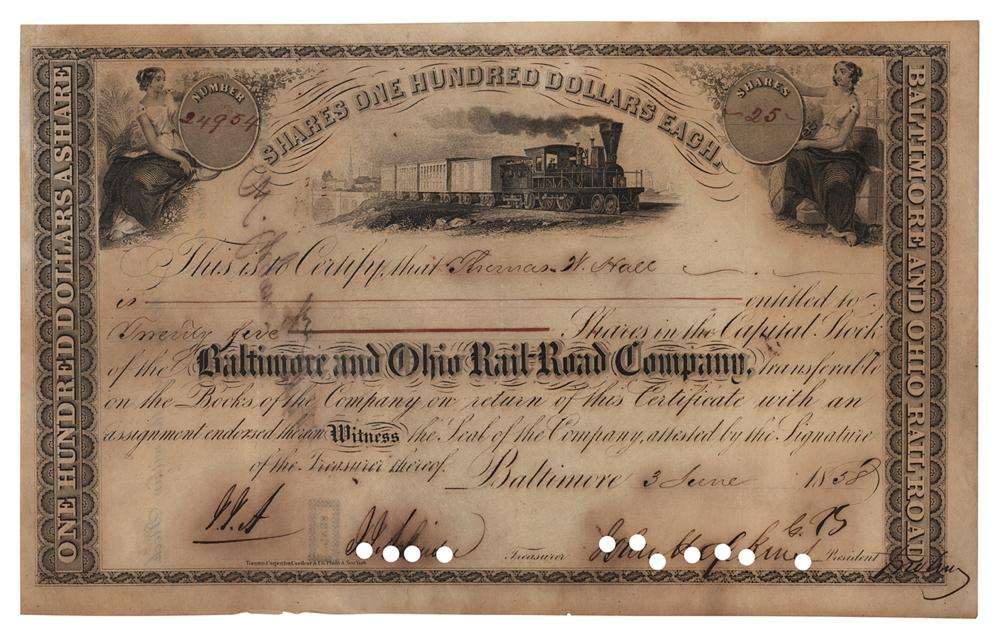 SHARES ONE HUNDRED DOLLARS EACH.
NUMBER
24954
SHARES
25
ONE HUNDRED DOLLARS A SHARE
BALTIMORE AND OHIO RAIL ROAD
This is to Certify, that Thomas W. Hall
is entitled to
Twenty five Shares in the Capital Stock
of the Baltimore and Ohio Rail-Road Company, transferable
on the Books of the Company on return of this Certificate with an
assignment endorsed thereon Witness the Seal of the Company, attested by the Signature
of the Treasurer thereof. Baltimore 3 June 1858
J.J.A
Treasurer
President